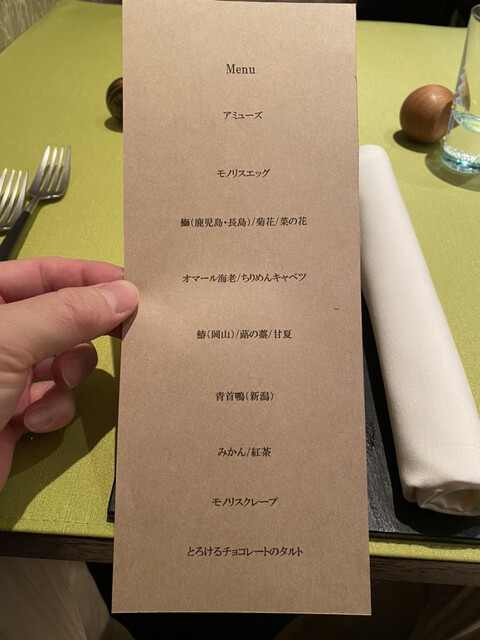 Menu
アミューズ
モノリスエッグ
鰤(鹿児島・長島)/菊花/菜の花
オマール海老/ちりめんキャベツ
鰆(岡山)/蕗の薹/甘夏
青首鴨(新潟)
みかん/紅茶
モノリスクレープ
とろけるチョコレートのタルト